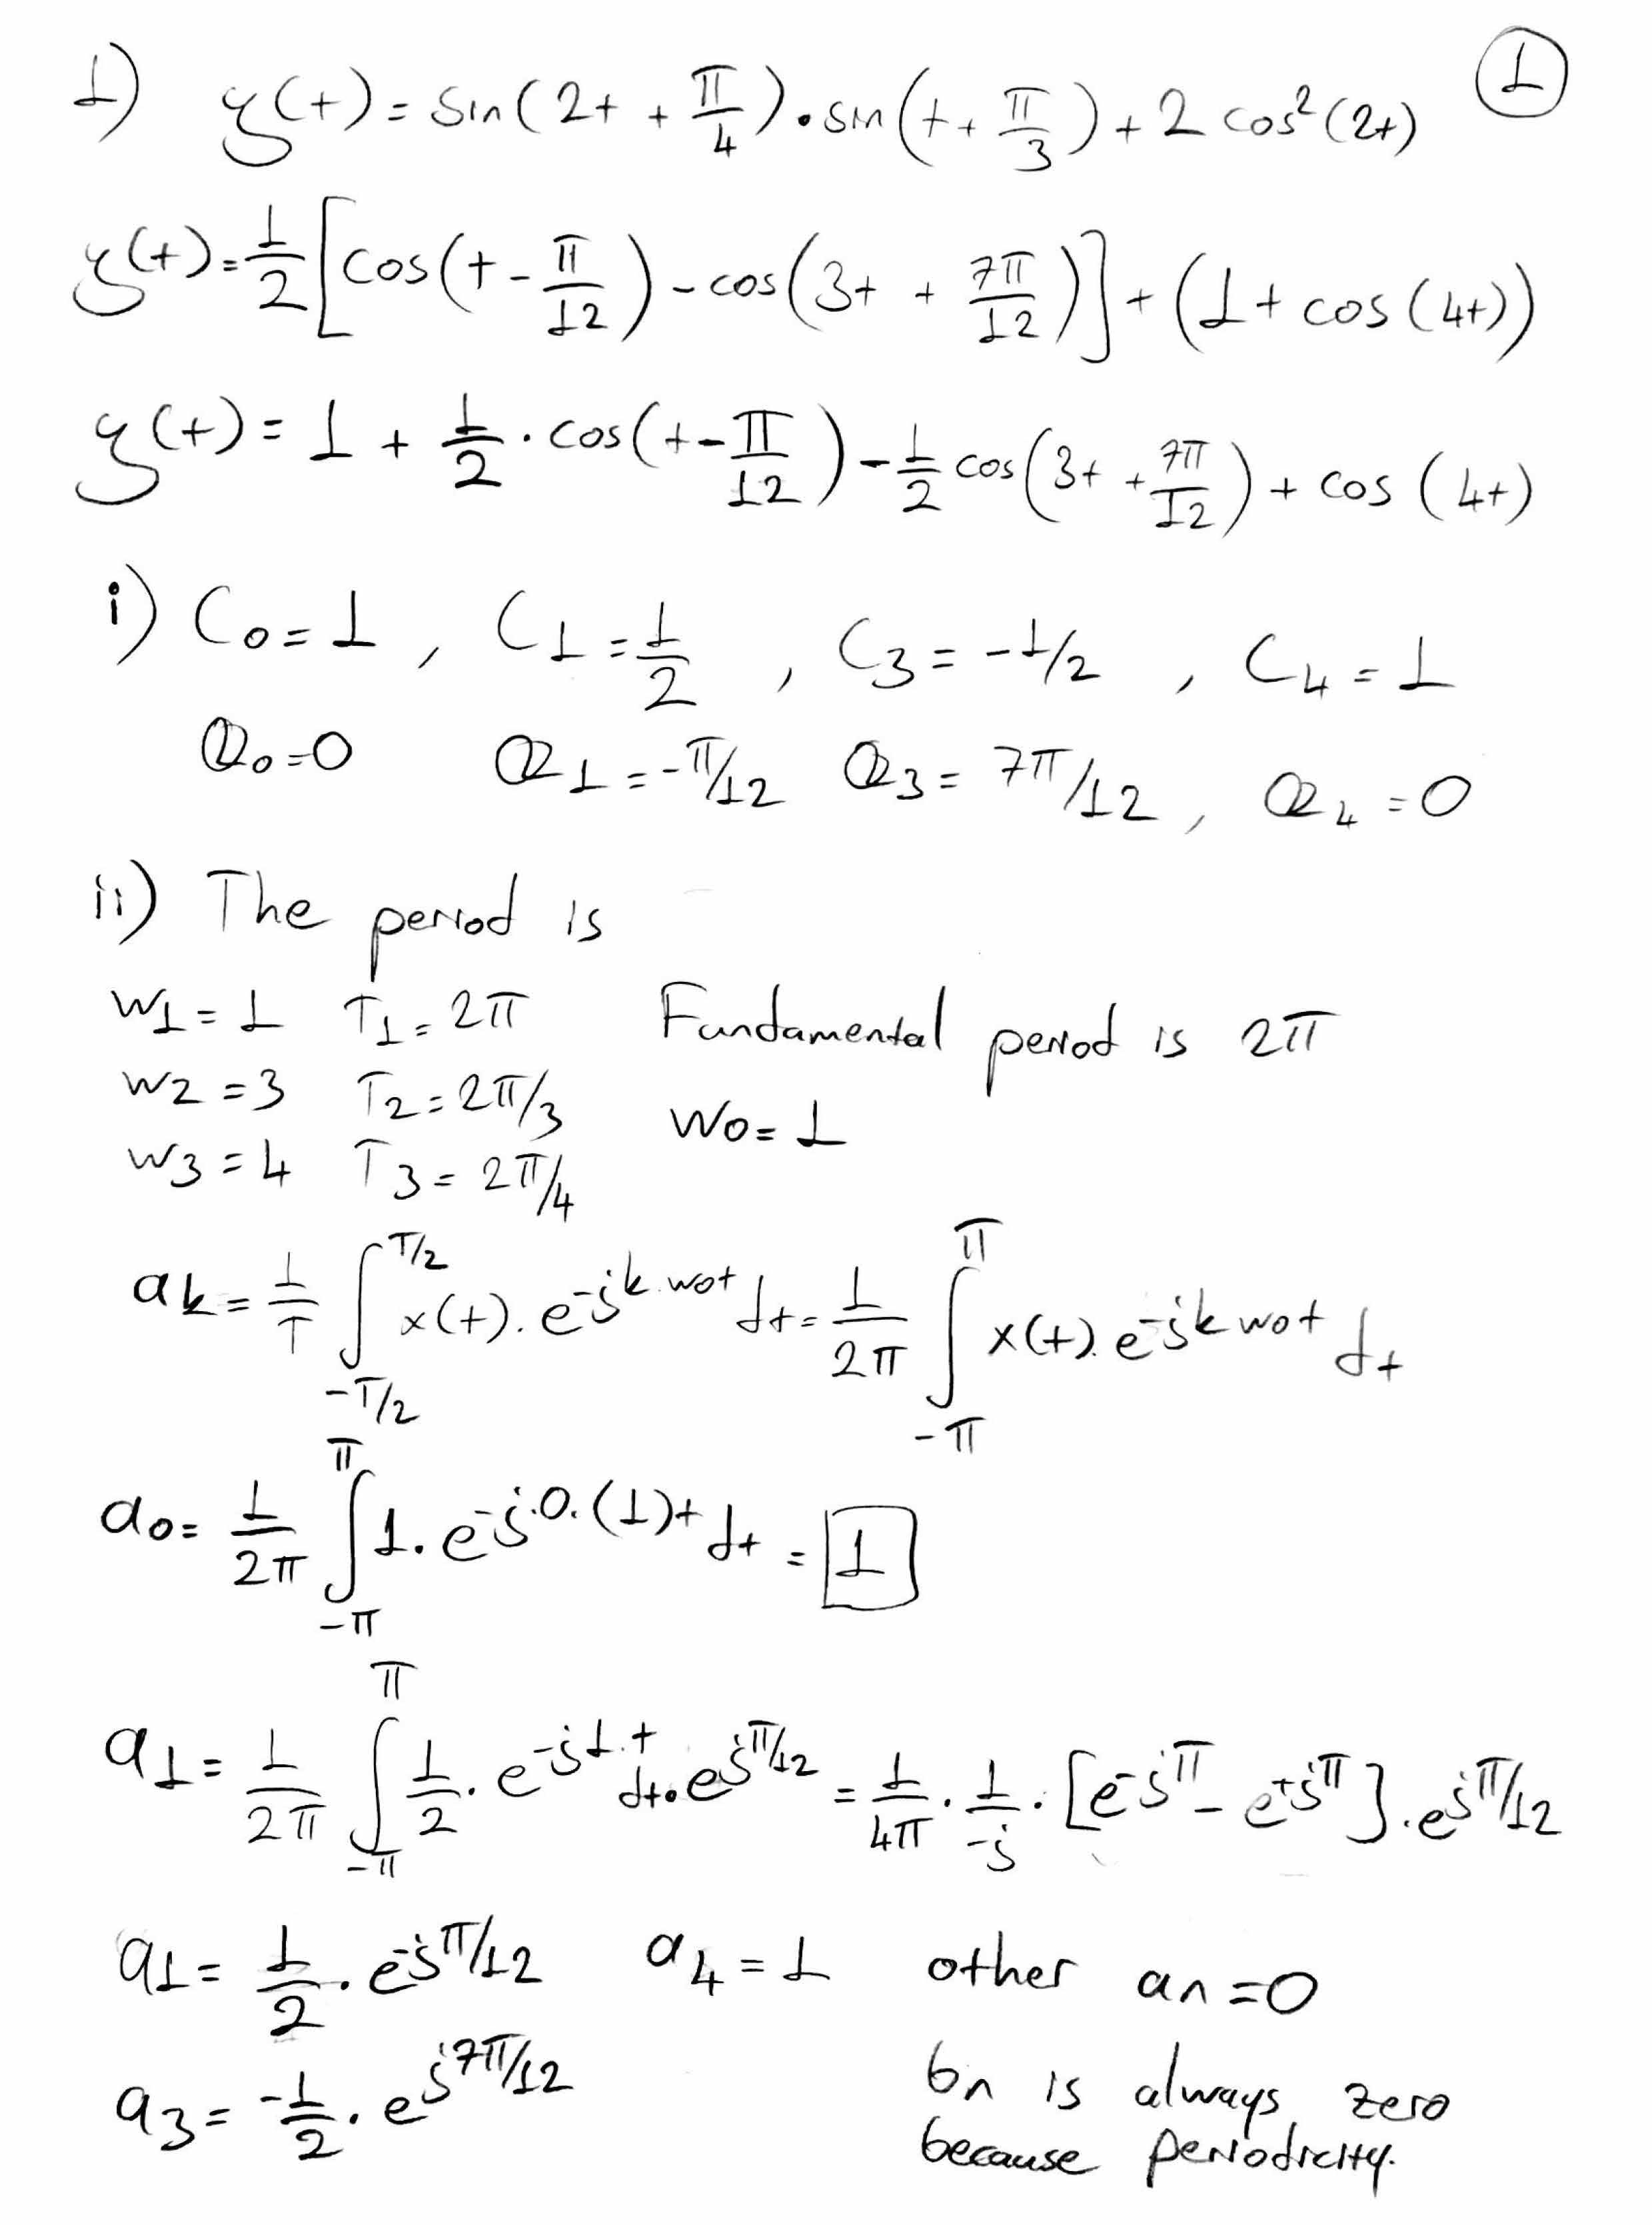 1) y(t) = sin(2t + π/4) . sin(t + π/3) + 2 cos²(2t) ①
y(t) = 1/2 [cos(t - π/12) - cos(3t + 7π/12)] + (1 + cos(4t))
y(t) = 1 + 1/2 . cos(t - π/12) - 1/2 cos(3t + 7π/12) + cos(4t)
i) C0 = 1 , C1 = 1/2 , C3 = -1/2 , C4 = 1
Q0 = 0 Q1 = -π/12 Q3 = 7π/12 , Q4 = 0
ii) The period is
w1 = 1 T1 = 2π Fundamental period is 2π
w2 = 3 T2 = 2π/3 wo = 1
w3 = 4 T3 = 2π/4
ak = 1/T ∫_{-T/2}^{T/2} x(t). e^{-jk.wot} dt = 1/2π ∫_{-π}^{π} x(t). e^{-jkwot} dt
a0 = 1/2π ∫_{-π}^{π} 1. e^{-j.0.(1)t} dt = 1
a1 = 1/2π ∫_{-π}^{π} 1/2 . e^{-j1.t} dt . e^{jπ/12} = 1/4π . 1/-j . [e^{-jπ} - e^{+jπ}] . e^{jπ/12}
a1 = 1/2 . e^{-jπ/12} a4 = 1 other an = 0
a3 = -1/2 . e^{j7π/12} bn is always zero
because periodicity.